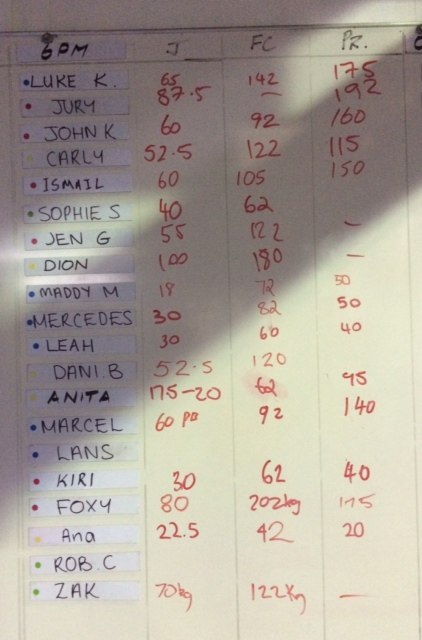 6PM J FC PR.
LUKE K. 65 142 175
JURY 87.5 — 192
JOHN K 60 92 160
CARLY 52.5 122 115
ISMAIL 60 105 150
SOPHIE S 40 62
JEN G 55 122 —
DION 100 180 —
MADDY M 18 72 50
MERCEDES 30 82 50
LEAH 30 60 40
DANI.B 52.5 120
ANITA 62 95
MARCEL 60 PB 92 140
LANS
KIRI 30 62 40
FOXY 80 202kg 175
Ana 22.5 42 20
ROB.C
ZAK 70kg 122Kg —